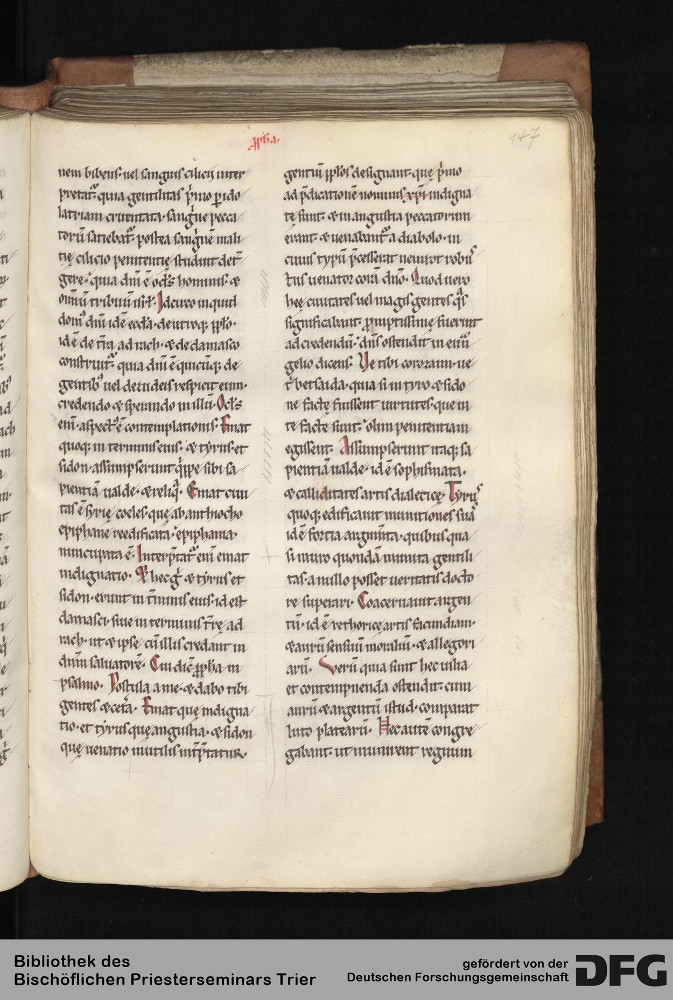 147
nem bibens· uel sanguis cilicii inter
pretat᷑· quia gentilitas p̄mo p ido
latriam cruentata· sang̃ne pecca
torū satiebat᷑· postea sang̃nē mali
tię cilicio penitentię studuit det̃
gere· quia dñi ē ocłs hominis· ⁊
omniū tribuum isr̃l· Idcirco inquid
dom᷒ dñi idē ecc̃la· de utroq; pp̃lo·
idē de tr̃a adrach· ⁊ de damasco
construit᷑· quia dñi ē quicūq; de
gentib᷒ uel de iudeis respicit eum·
credendo ⁊ sperando in illū· Ocłs
enī· aspect᷒ ē contemplationis· Emat
quoq; in terminis eius· ⁊ tyrus· et
sidon· assūpserunt q̃ppe sibi sa
pientiā ualde· ⁊ reliq̃· Emat ciui
tas ē syrię coeles· que ab anthiocho
epiphane reedificata· epiphania·
nuncupata ē· Interp̃tat᷑ enī emat
indignatio· Et hec g̃ ⁊ tyrus et
sidon· erunt in t̃minis eius· id est
damasci· siue in terminis tr̃ę ad
rach· ut ⁊ ipse cū illis credant in
dñm saluatorē· Cui dič pp̃ha in
psalmo· Postula a me· ⁊ dabo tibi
gentes ⁊ cet̃a· Emat quę indigna
tio· et tyrus quę angustia· ⁊ sidon
quę uenatio inutilis int̃p̃tatur·
gentiū pp̃los designant· quę p̃mo
ad p̃dicationē nominis xp̃i indigna
tę sunt· ⁊ in angustia peccatorum
erant· ⁊ uenabant᷑ a diabolo· in
cuius typū p̃cesserat nemrot robus᷒
tus uenator corā dño· Quod uero
hęę ciuitates uel magis gentes q̃s
significabant· promptissimę fuerint
ad credendū· dñs ostendit in euñ
gelio dicens· Ve tibi corozain· ue
t̃ betsaida· qua si in tyro ⁊ sido
ne factę fuissent uirtutes· que in
te factę sunt· olim penitentiam
egissent· Assumpserunt itaq; sa
pientiā ualde· id ē sophismata·
⁊ calliditates artis dialecticę· Tyrus᷒
quoq; edificauit munitiones suas᷒
id ē fortia argum̃ta· quibus qua
si muro quodam munita gentili
tas· a nullo posset ueritatis docto
re superari· Coaceruauit argen
tū· id ē rethoricę artis facundiam·
⁊ aurū sensuū moraliū· ⁊ allegori
arū· Verū quia sunt hec uilia
et contempnenda ostendit· cum
aurū ⁊ argentū istud· comparat
luto platearū· Hec autē congre
gabant· ut munirent regnum
Bibliothek des
Bischöflichen Priesterseminars Trier
gefördert von der
Deutschen Forschungsgemeinschaft
DFG